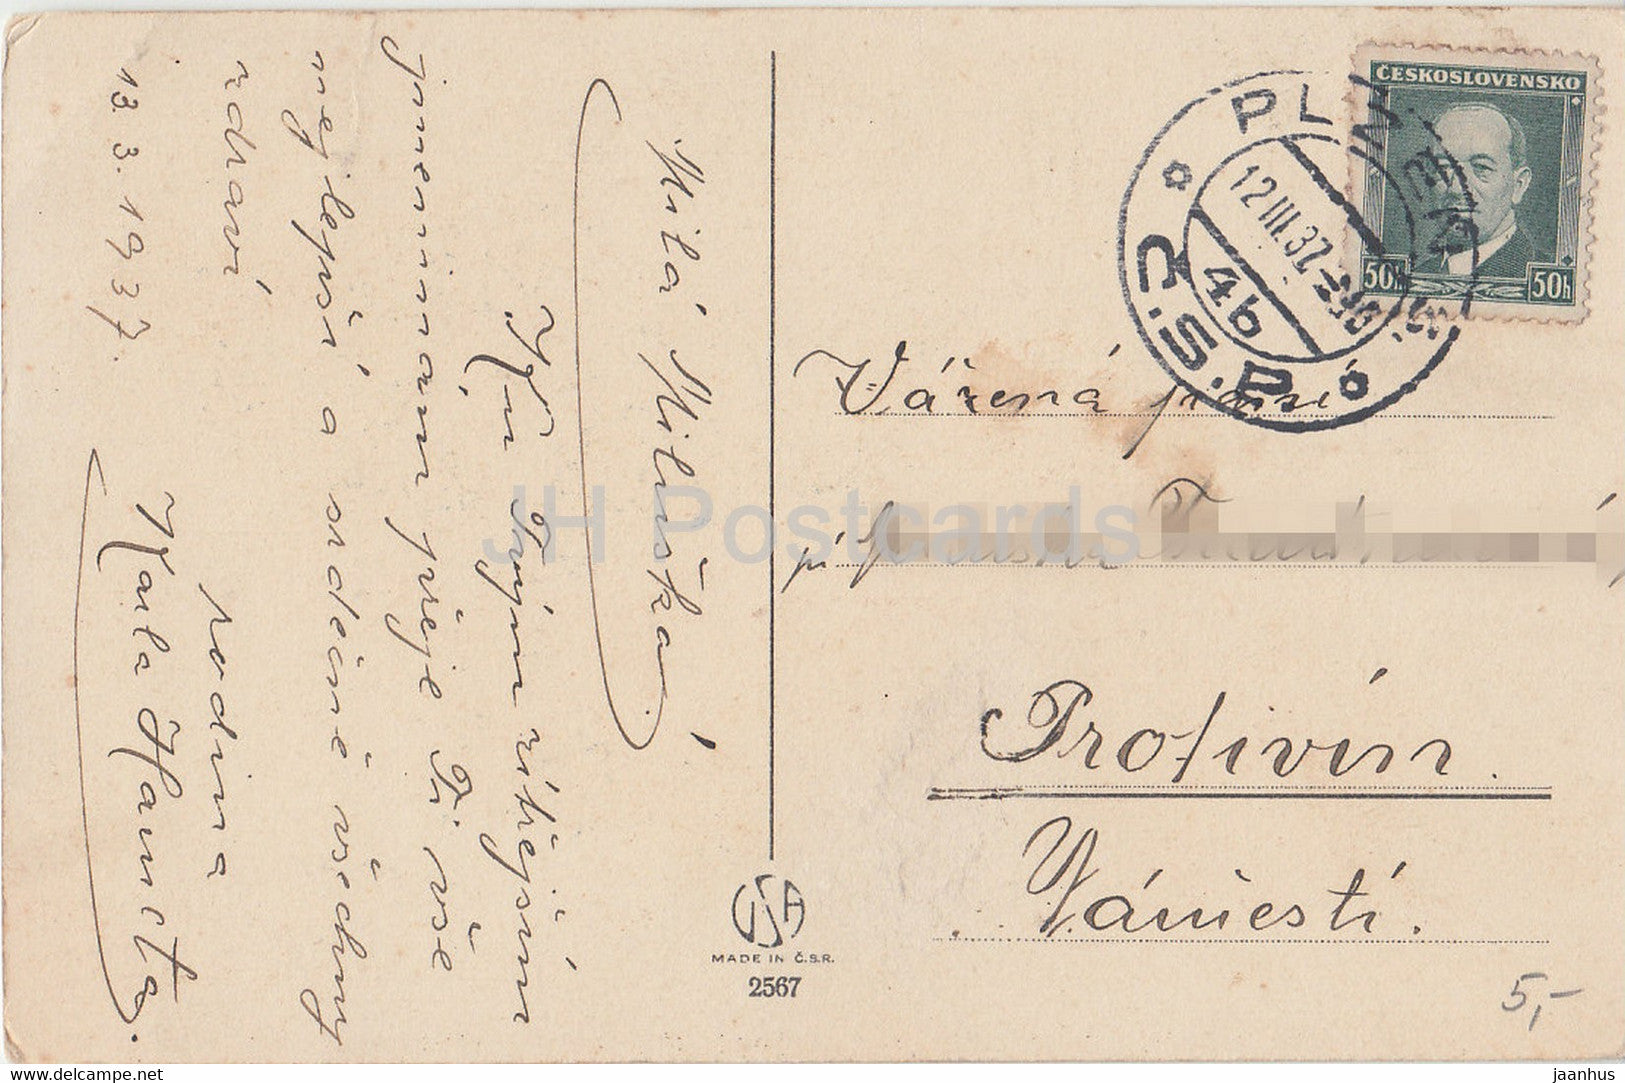 Milá Miluška!
Ku Tvým zítřejším
jmeninám přeje Ti vše
nejlepší a srdečně všechny
zdraví
rodina
Karla Hančta.
13. 3. 1937.
ČESKOSLOVENSKO
50h 50h
12.III.37
4b
Vážená paní
Protivín.
Náměstí.
MADE IN Č.S.R.
2567
5,-
JH Postcards
https://www.delcampe.net
jaanhus